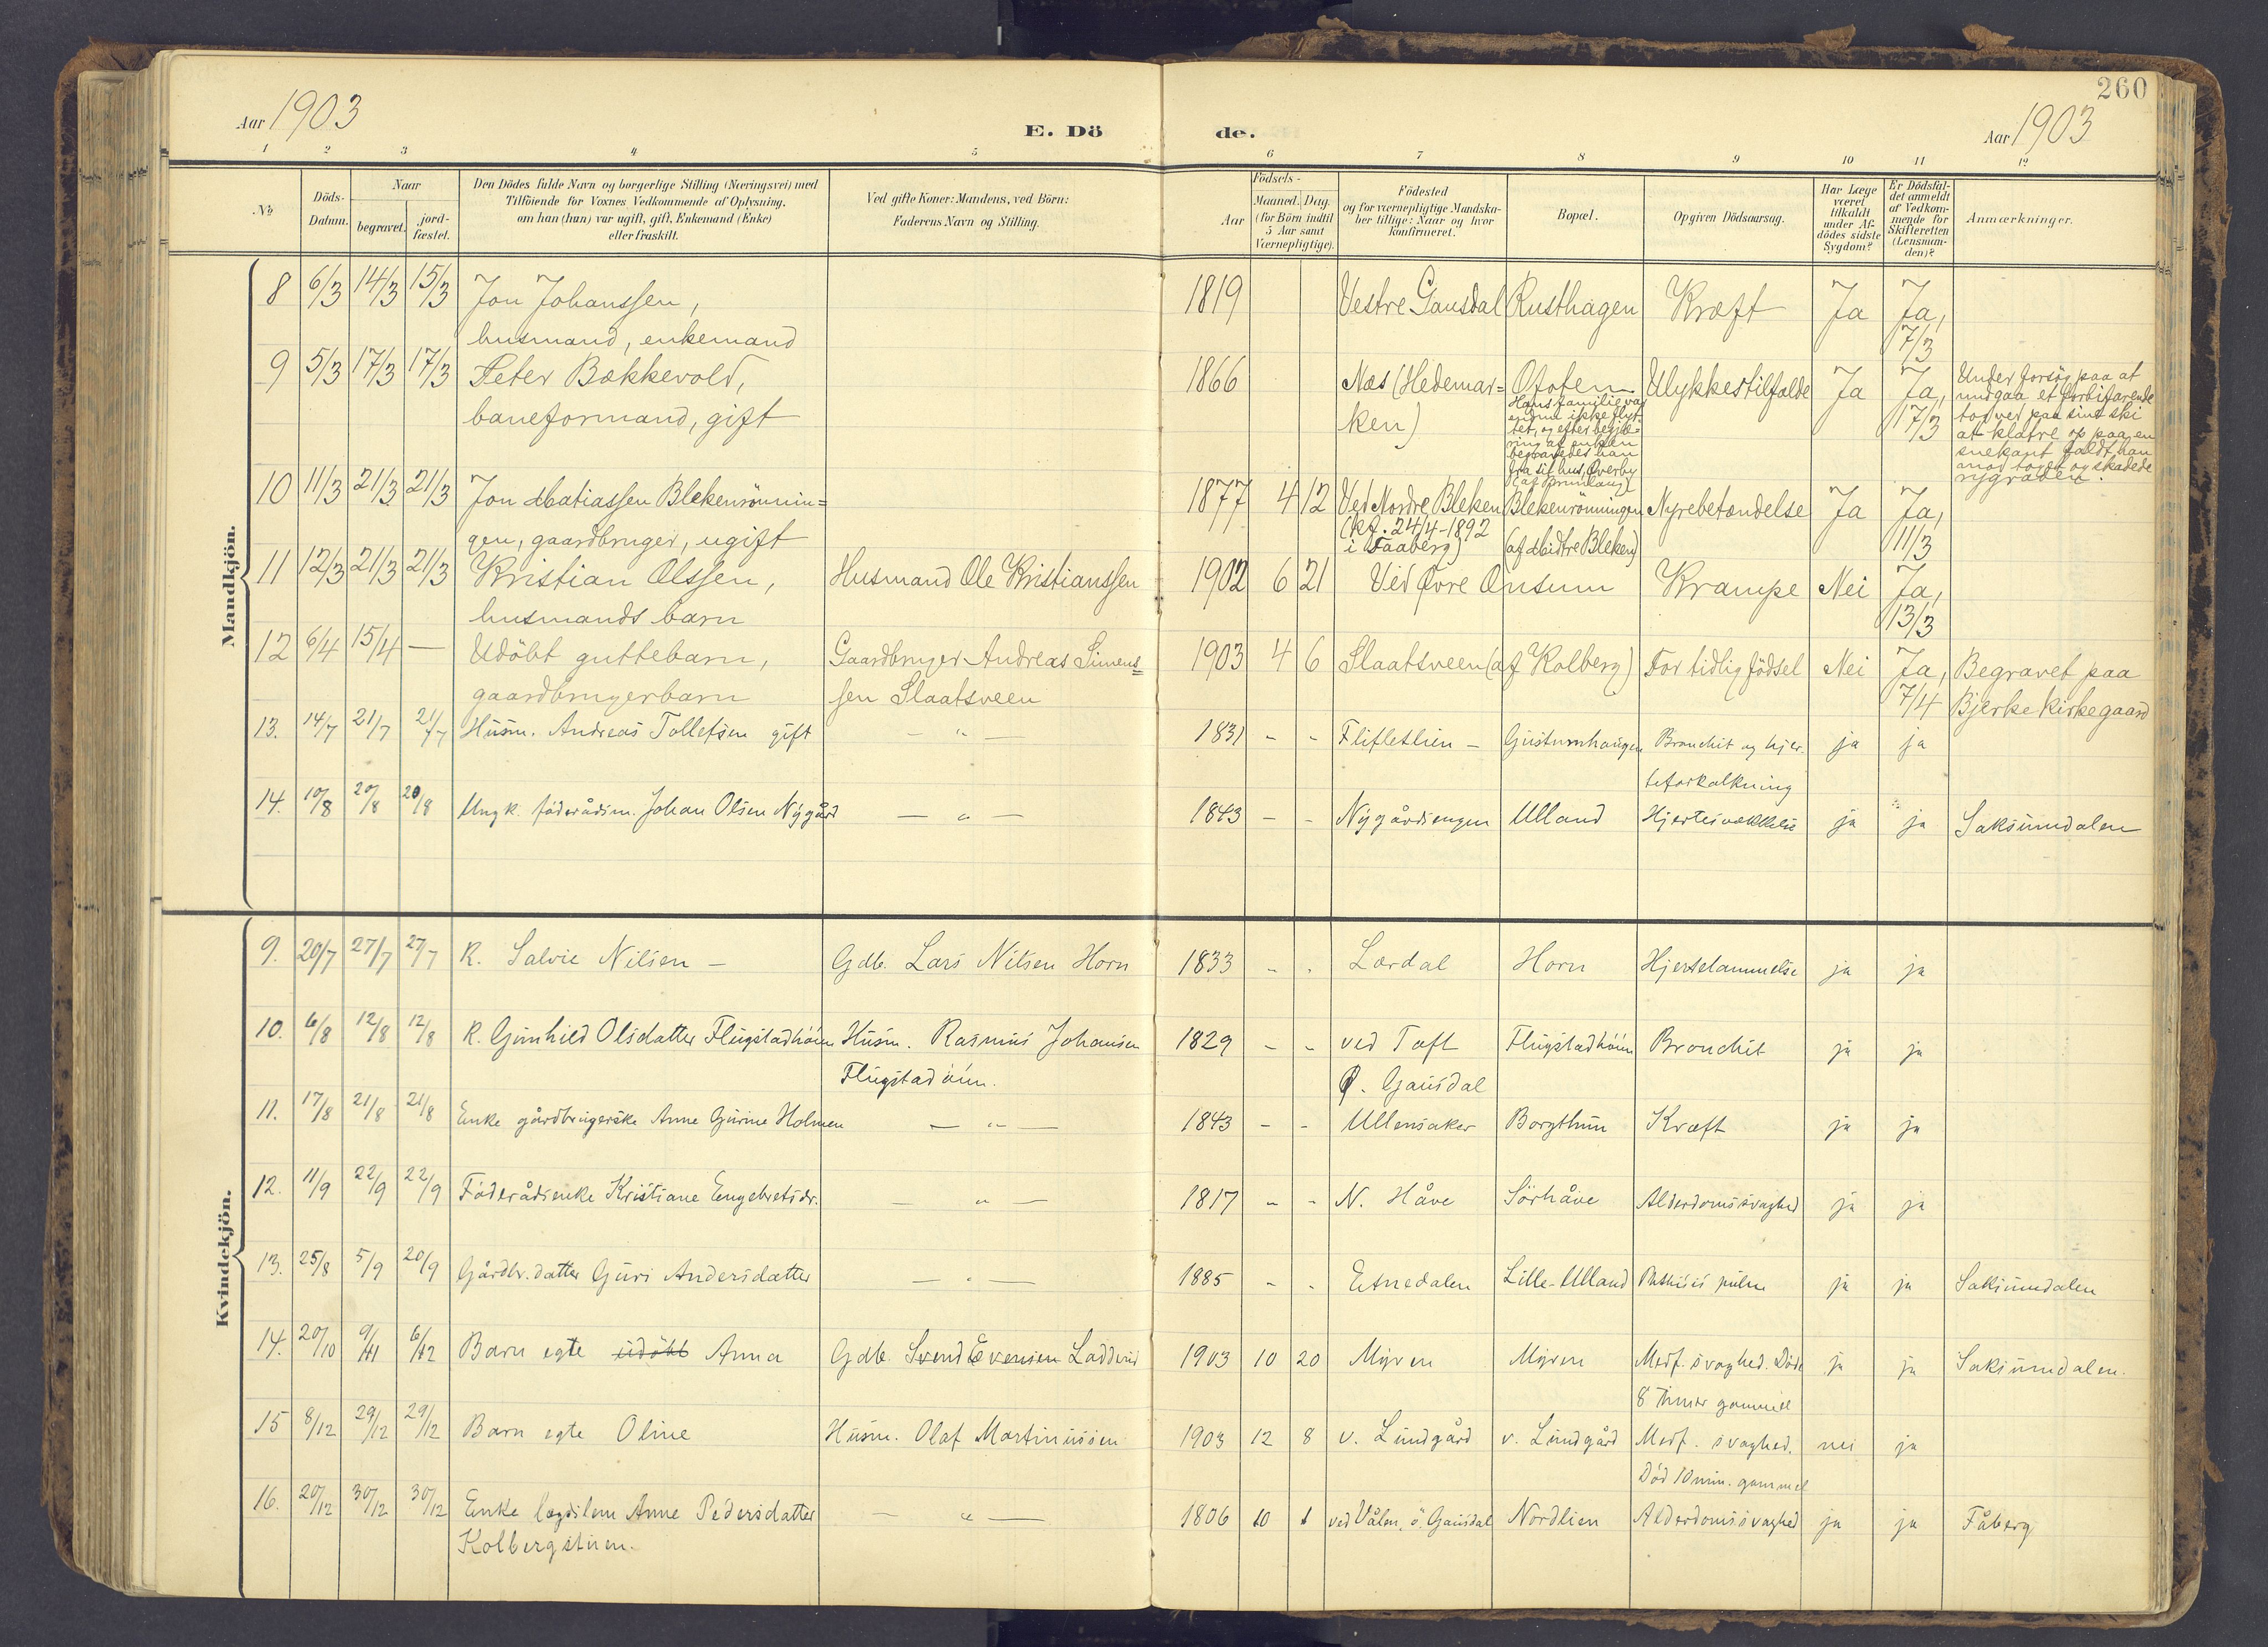 260
Aar 1903
E. Dö
de.
Aar 1903
1 2 3 4 5 6 7 8 9 10 11 12
No
Döds-
Datum.
Naar
begravet.
jord-
fæstet.
Den Dödes fulde Navn og borgerlige Stilling (Næringsvei) med
Tilföiende for Voxnes Vedkommende af Oplysning,
om han (hun) var ugift, gift, Enkemand (Enke)
eller fraskilt.
Ved gifte Koner: Mandens, ved Börn:
Faderens Navn og Stilling.
Födsels-
Aar
Maaned. Dag.
(for Börn indtil
5 Aar samt
Værnepligtige).
Födested
og for værnepligtige Mandska-
ber tillige: Naar og hvor
konfirmeret.
Bopæl.
Opgiven Dödsaarsag.
Har Læge
været
tilkaldt
under Af-
dödes sidste
Sygdom?
Er Dödsfal-
det anmeldt
af Vedkom-
mende for
Skifteretten
(Lensman-
den)?
Anmærkninger.
Mandkjön.
8 6/3 14/3 15/3 Jon Johanssen, 1819 Vestre Gausdal Rusthagen Kræft Ja Ja,
husmand, enkemand 7/3
9 5/3 17/3 17/3 Peter Bækkevold, 1866 Næs (Hedemar= Ofoten Ulykkestilfælde Ja Ja,
baneformand, gift ken) 17/3
Hans familie var
endnu ikke flyt
tet, og efter begjæ=
ring af enken
begravedes han
fra sit hus, Överby
af Brunlaug
Under forsög paa at
undgaa et forbifarende
tog ved paa sine ski
at klatre op paa en
snekant faldt han
mod toget og skadede
rygraden.
10 11/3 21/3 21/3 Jon Matiassen Blekenrönnin= 1877 4 12 Ved Nordre Bleken Blekenrönningen Nyrebetændelse Ja Ja,
gen, gaardbruger, ugift (kf. 24/4-1892 (af Midtre Bleken) 11/3
i Faaberg)
11 12/3 21/3 21/3 Kristian Olssen, Husmand Ole Kristianssen 1902 6 21 Ved Övre Onsum Krampe Nei Ja,
husmands barn 13/3
12 6/4 15/4 — Udöbt guttebarn, Gaardbruger Andreas Simens= 1903 4 6 Slaatsveen (af Kolberg) For tidlig födsel Nei Ja, Begravet paa
gaardbrugerbarn sen Slaatsveen 7/4 Bjerke kirkegaard
13. 14/7 21/7 21/7 Husm. Andreas Tollefsen gift — " — 1831 - - Flifletlien - Gustumhaugen Bronchit og hjer- ja ja
teforkalkning
14. 10/8 20/8 20/8 Ungk. föderådsm. Johan Olsen Nygård — " — 1843 - - Nygårdsengen Ulland Hjertesvækkelse ja ja Saksumdalen
Kvindekjön.
9. 20/7 27/7 27/7 K. Salvie Nilsen - Gdb. Lars Nilsen Horn 1833 - - Lærdal Horn Hjertelammelse ja ja
10. 6/8 12/8 12/8 K. Gunhild Olsdatter Flugstadhöim Husm. Rasmus Johansen 1829 - - ved Toft Flugstadhöim Bronchit ja ja
Flugstadöim. Ø. Gausdal
11. 17/8 21/8 21/8 Enke gårdbrugerske Anne Gurine Holmen — " — 1843 - - Ullensaker Borgthun Kræft ja ja
12. 11/9 22/9 22/9 Föderådsenke Kristiane Engebretsdr. — " — 1817 - - N. Håve Sörhåve Alderdomssvaghed ja ja
13. 25/8 5/9 20/9 Gårdbr. datter Guri Andersdatter — " — 1885 - - Etnedalen Lille-Ulland Phthisis pulm ja ja Saksumdalen
14. 20/10 9/11 6/12 Barn egte udöbt Anna Gdb. Svend Evensen 1903 10 20 Myren Myren Medf. svaghed. Döde ja ja Saksumdalen.
8 timer gammel
15 8/12 29/12 29/12 Barn egte Oline Husm. Olaf Martinussen 1903 12 8 v. Lundgård v. Lundgård Medf. svaghed. nei ja
Död 10 min. gammel
16. 20/12 30/12 30/12 Enke lægdslem Anne Pedersdatter — " — 1806 10 1 ved Vålen, ö. Gausdal Nordlien Alderdomssvaghed ja ja Fåberg
Kolbergstuen.